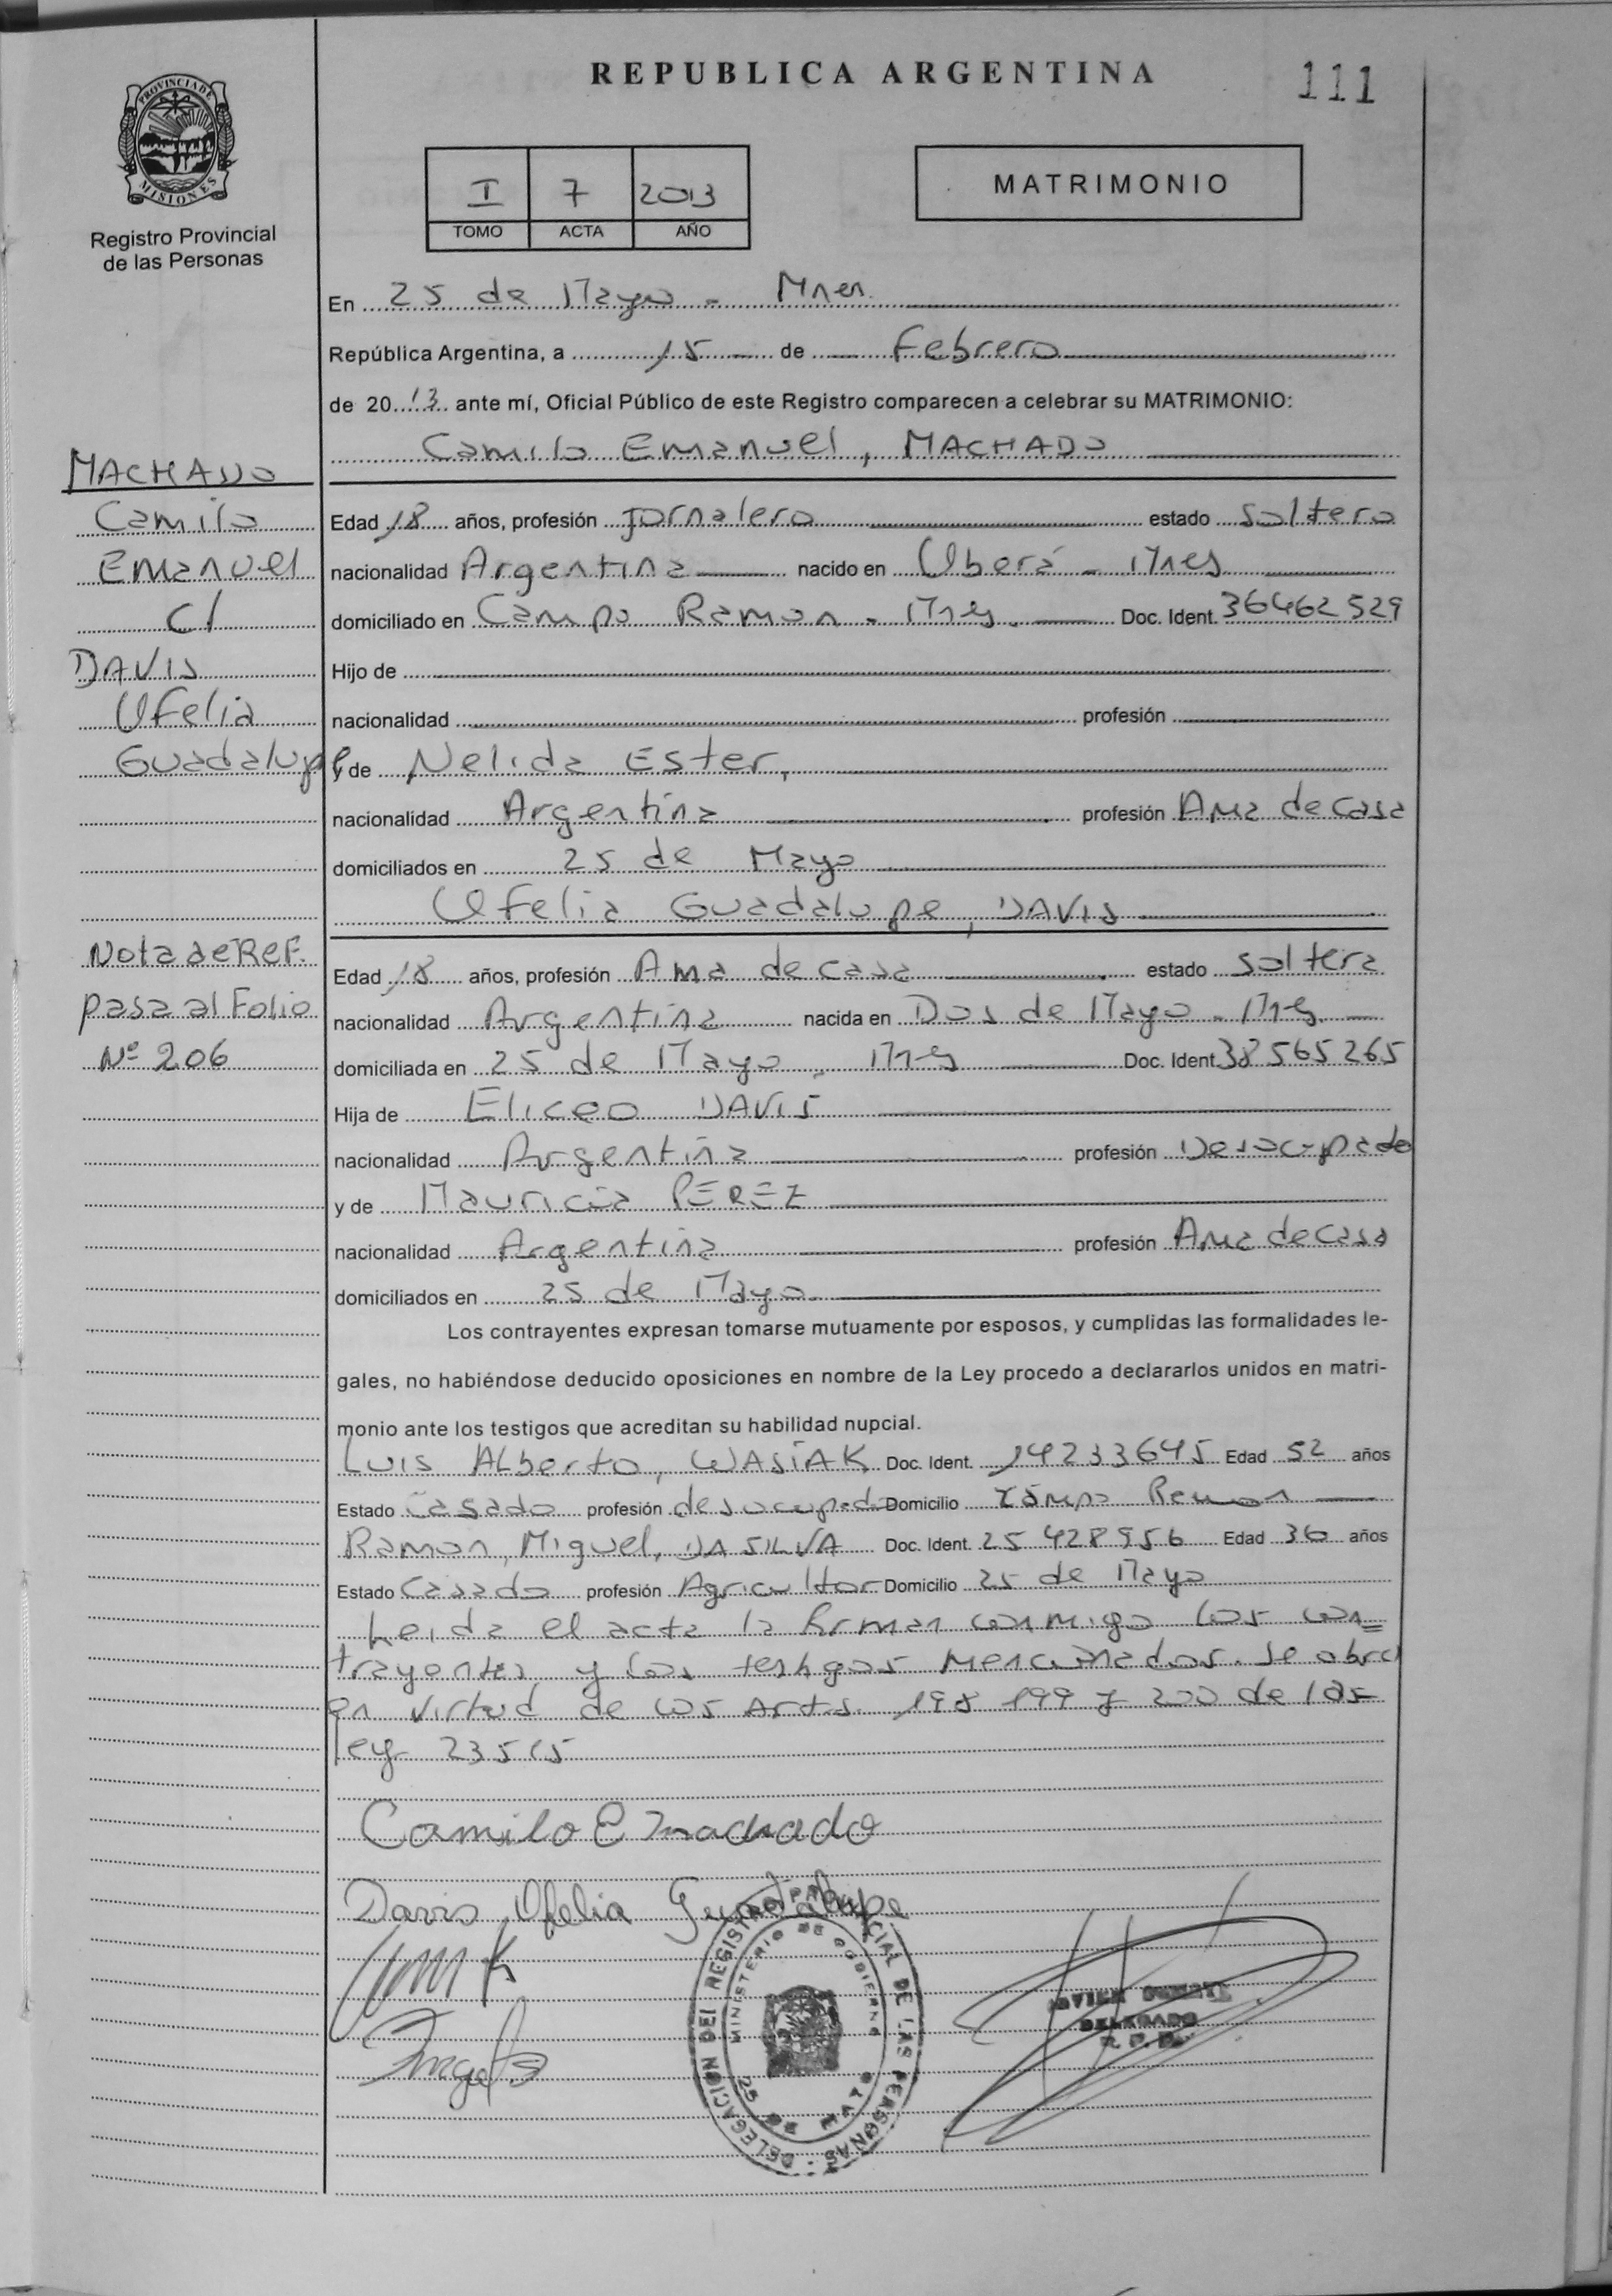 REPUBLICA ARGENTINA
111
PROVINCIA DE
MISIONES
Registro Provincial
de las Personas
I 7 2013
TOMO ACTA AÑO
MATRIMONIO
En 25 de Mayo - Mnes.
República Argentina, a 15 de Febrero
de 2013 ante mí, Oficial Público de este Registro comparecen a celebrar su MATRIMONIO:
Camilo Emanuel, MACHADO
MACHADO
Camilo
Emanuel
c/
DAVIS
Ofelia
Guadalupe
Nota de Ref.
pasa al Folio
Nº 206
Edad 18 años, profesión Jornalero estado Soltero
nacionalidad Argentina nacido en Oberá - Mnes
domiciliado en Campo Ramon - Mnes. Doc. Ident. 36462529
Hijo de
nacionalidad profesión
y de Nelida Ester,
nacionalidad Argentina profesión Ama de casa
domiciliados en 25 de Mayo
Ofelia Guadalupe, DAVIS
Edad 18 años, profesión Ama de casa estado Soltera
nacionalidad Argentina nacida en Dos de Mayo - Mnes.
domiciliada en 25 de Mayo - Mnes Doc. Ident. 38565265
Hija de Eliceo DAVIS
nacionalidad Argentina profesión Desocupado
y de Mauricia PEREZ
nacionalidad Argentina profesión Ama de Casa
domiciliados en 25 de Mayo.
Los contrayentes expresan tomarse mutuamente por esposos, y cumplidas las formalidades le-
gales, no habiéndose deducido oposiciones en nombre de la Ley procedo a declararlos unidos en matri-
monio ante los testigos que acreditan su habilidad nupcial.
Luis Alberto, WASIAK Doc. Ident. 14233645 Edad 52 años
Estado Casado profesión desocupado Domicilio Campo Ramon
Ramon, Miguel, DA SILVA Doc. Ident. 25428956 Edad 36 años
Estado Casado profesión Agricultor Domicilio 25 de Mayo
Leida el acta la firman conmigo los con=
trayentes y los testigos mencionados. Se obra
en virtud de los Arts. 198 199 y 200 de las
ley 23515
Camilo E Machado
Davis Ofelia Guadalupe
DELEGACION DEL REGISTRO PROVINCIAL DE LAS PERSONAS
MINISTERIO DE GOBIERNO
25 DE MAYO
DELEGADO
R.P.P.